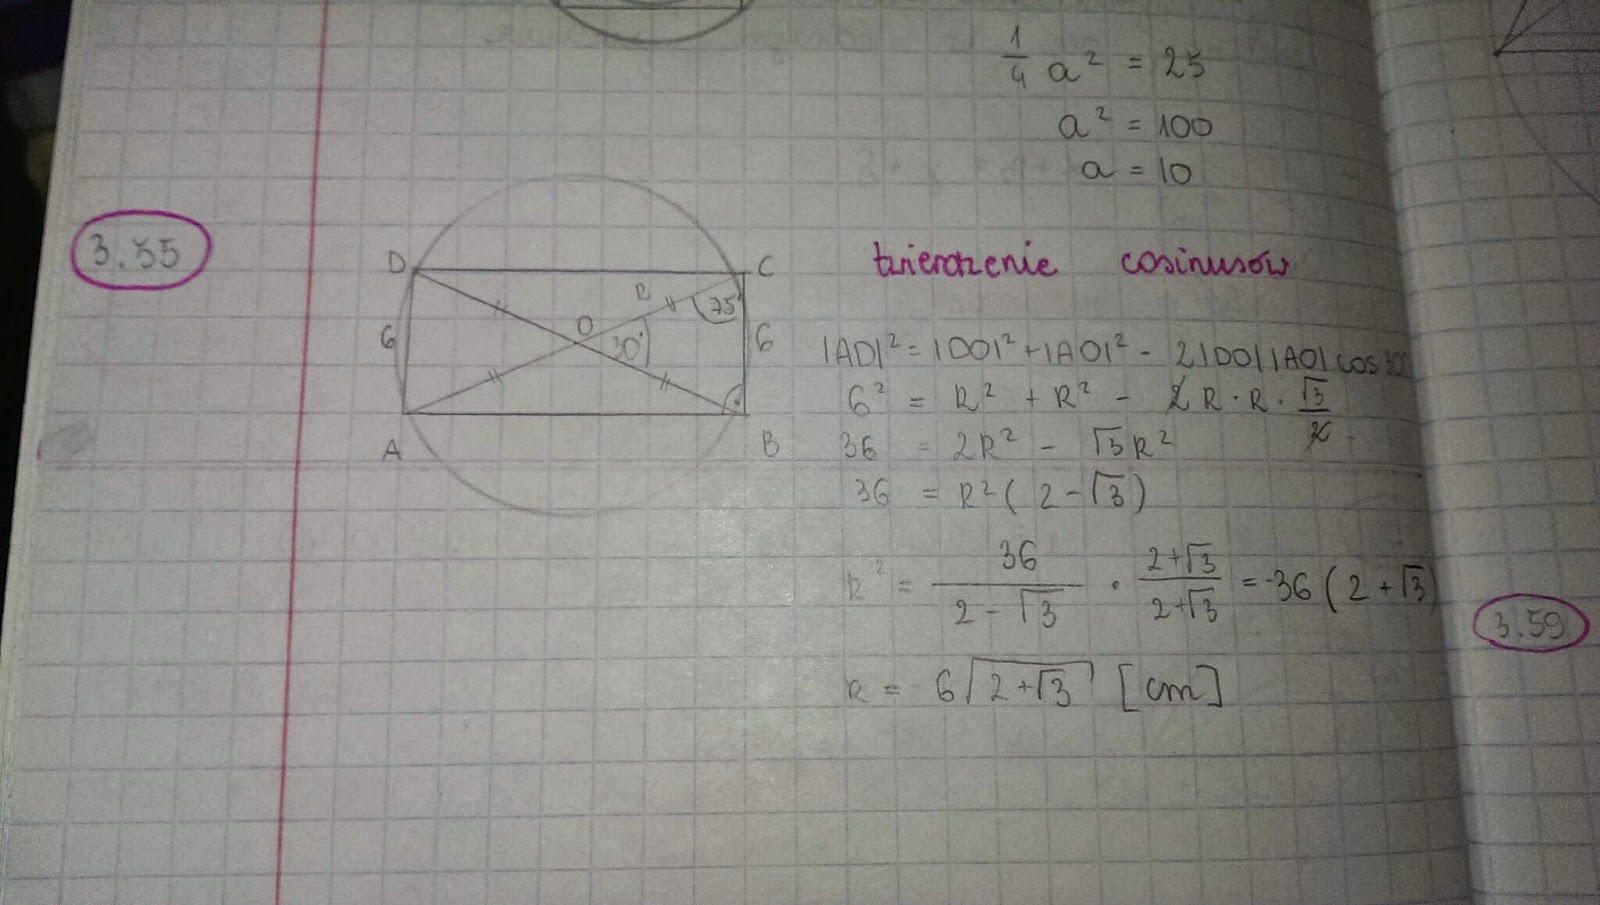 1/4 a² = 25
a² = 100
a = 10
3.55
D
C
R
75°
O
30°
6
6
A
B
twierdzenie cosinusów
|AD|² = |DO|² + |AO|² - 2|DO||AO|cos30
6² = R² + R² - 2R·R·√3/2
36 = 2R² - √3R²
36 = R²(2-√3)
R² = 36/(2-√3) · (2+√3)/(2+√3) = 36(2+√3)
R = 6√(2+√3) [cm]
3.59